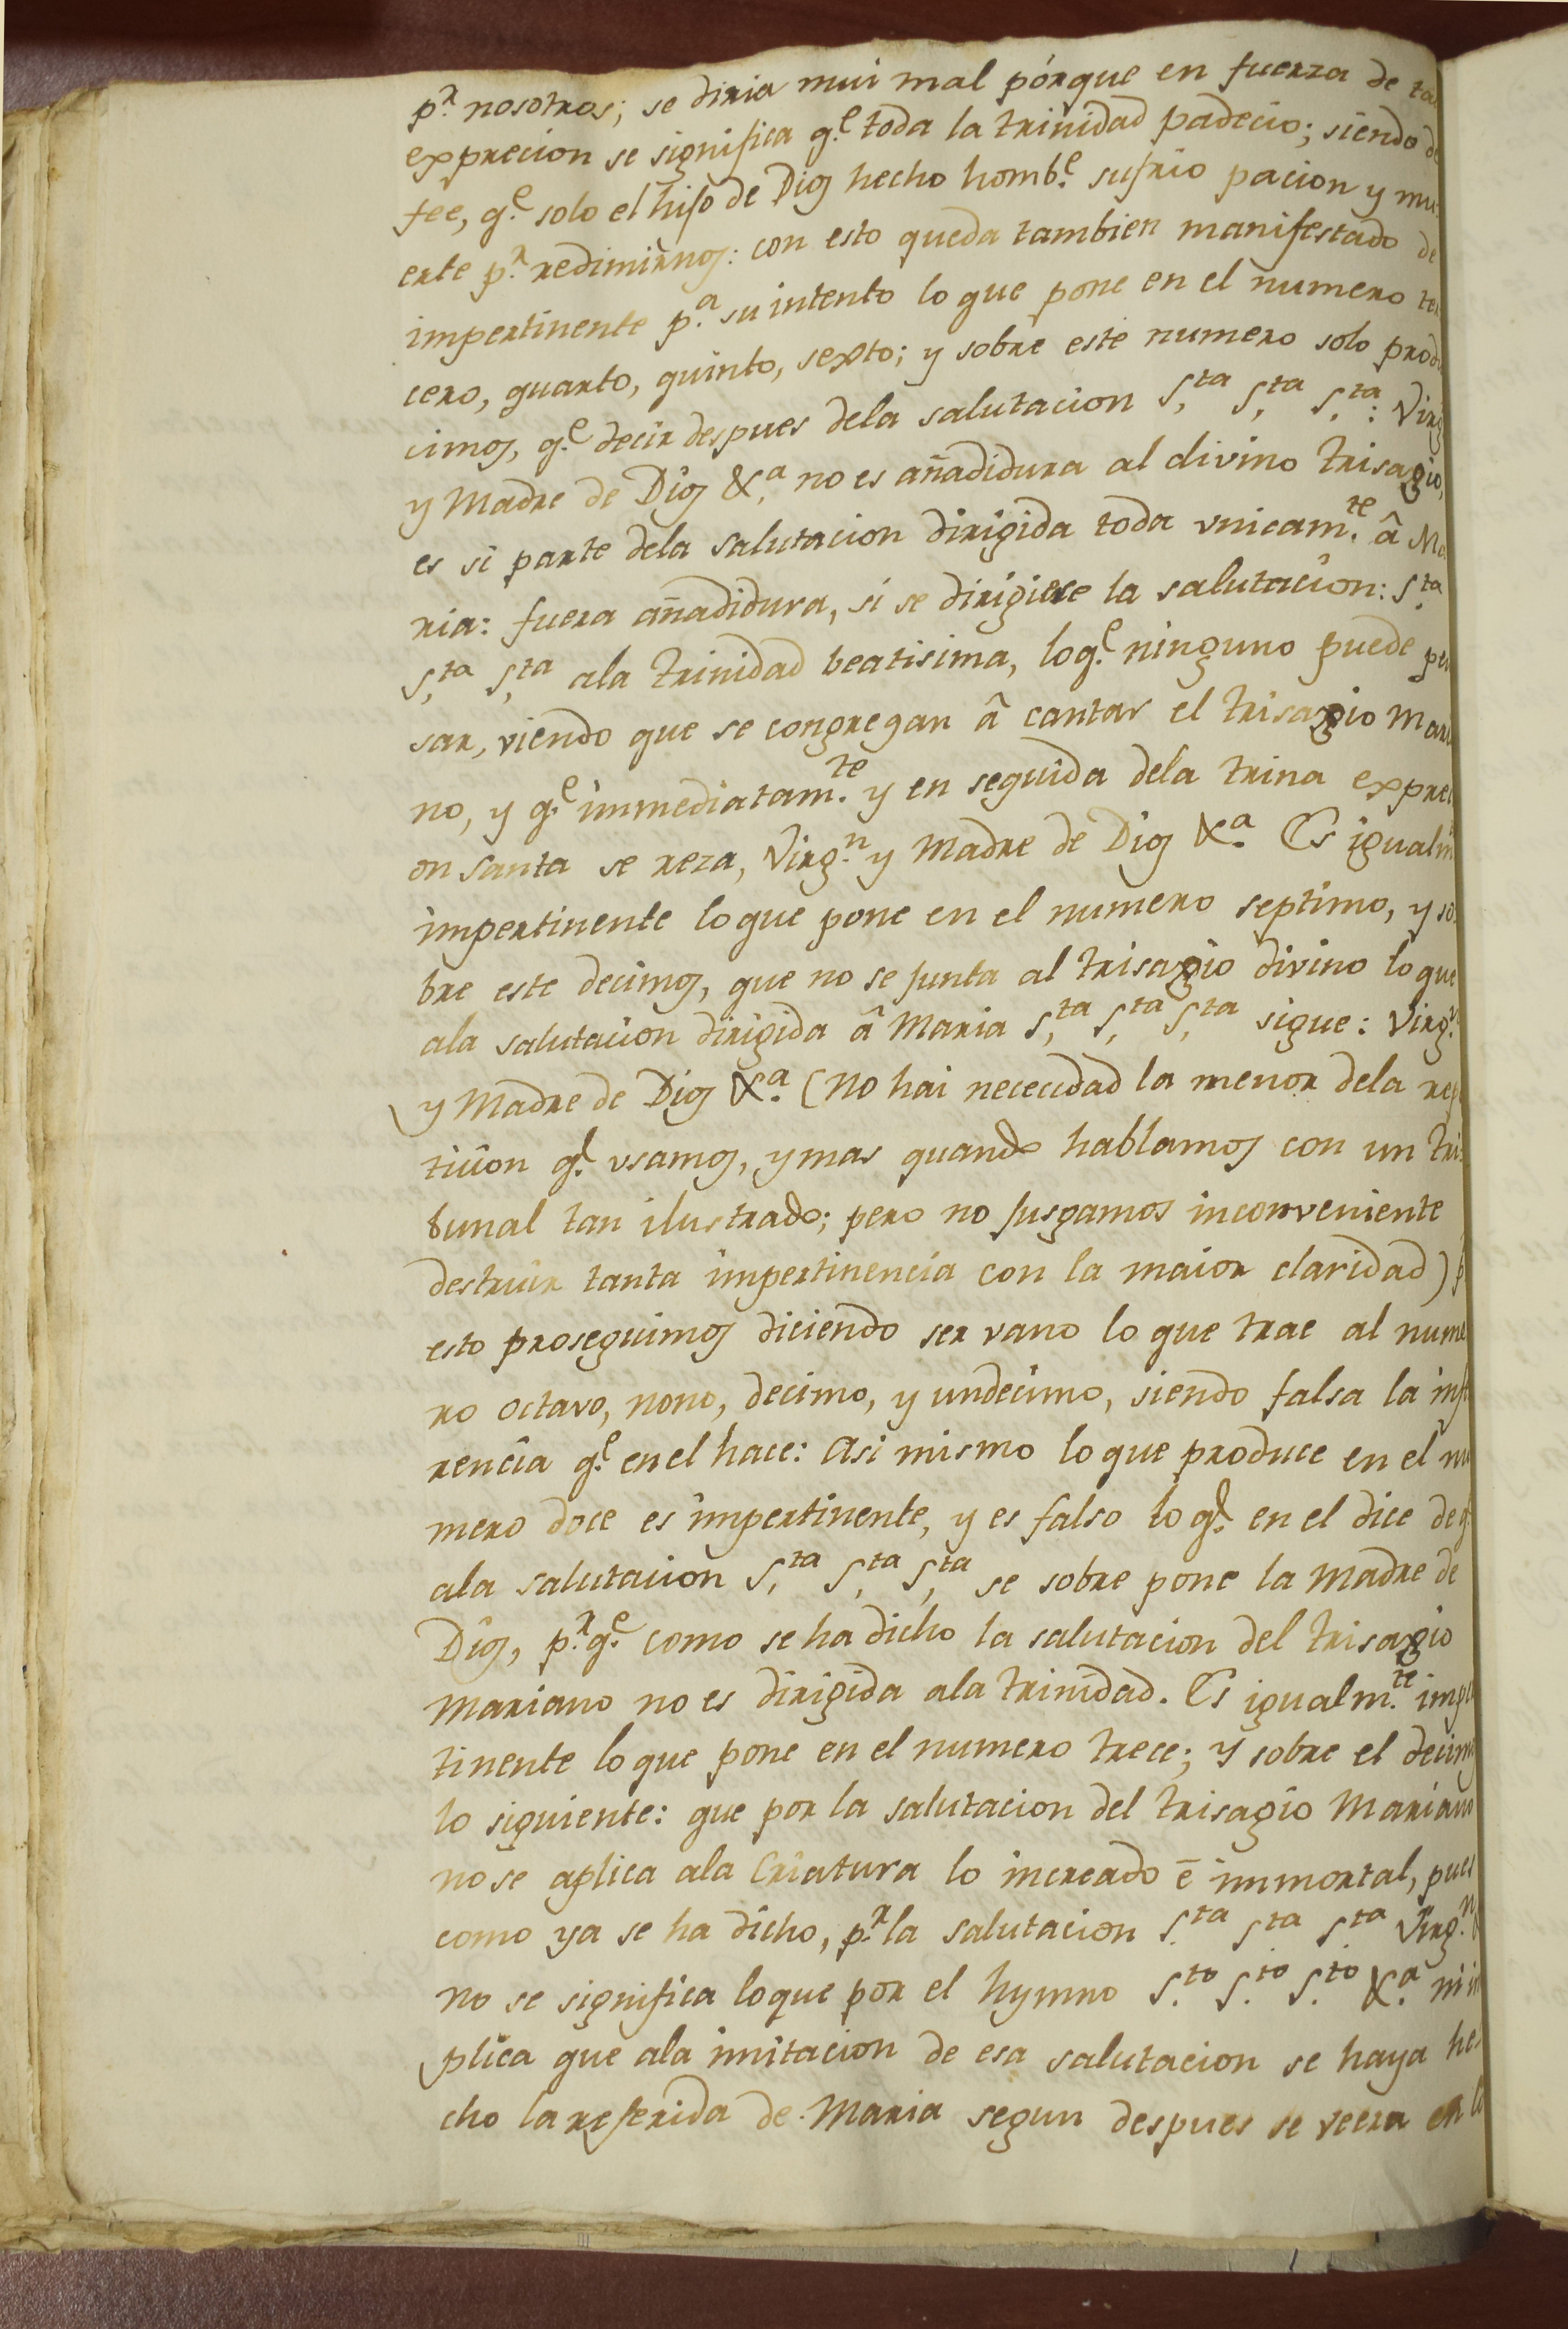 p.r nosotros; se diria mui mal pórque en fuerza de ta
exprecion se significa q.e toda la trinidad padecio; siendo de
fee, q.e solo el hijo de Dios hecho homb.e sufrio pacion y mu-
erte p.r redimirnos: con esto queda tambien manifestado de
impertinente p.a su intento lo que pone en el numero ter
cero, quarto, quinto, sexto; y sobre este numero solo produ
cimos, q.e decir despues dela salutacion S.ta S.ta S.ta: Virg
y Madre de Dios &.a no es añadidura al divino trisagio,
es si parte dela salutacion dirigida toda vnicam.te â Ma
ria: fuera añadidura, si se dirigiese la salutacion: S.ta
S.ta S.ta ala trinidad beatisima, loq.e ninguno puede pen
sar, viendo que se congregan â cantar el trisagio Maria
no, y q.e immediatam.te y en seguida dela trina expreci
on santa se reza, Virg.n y Madre de Dios &.a Es igualm
impertinente lo que pone en el numero septimo, y so
bre este decimos, que no se junta al trisagio divino lo que
ala salutacion dirigida â Maria S.ta S.ta S.ta sigue: Virg.n
y Madre de Dios &.a (No hai nececidad la menor dela repe
ticion q.e vsamos, y mas quando hablamos con un tri-
bunal tan ilustrado; pero no jusgamos inconveniente
destruir tanta impertinencia con la maior claridad) p
esto proseguimos diciendo ser vano lo que trae al nume
ro octavo, nono, decimo, y undecimo, siendo falsa la infe
rencia q.e en el hace: Asi mismo lo que produce en el nu
mero doce es impertinente, y es falso lo q.e en el dice de q
ala salutacion S.ta S.ta S.ta se sobre pone la Madre de
Dios, p.rq.e como se ha dicho la salutacion del trisagio
Mariano no es dirigida ala trinidad. Es igualm.te imper
tinente lo que pone en el numero trece; y sobre el decimos
lo siguiente: que por la salutacion del trisagio Mariano
no se aplica ala Criatura lo increado ê immortal, pues
como ya se ha dicho, p.r la salutacion S.ta S.ta S.ta Virg.n &
no se significa loque por el hymno S.to S.to S.to &.a ni im
plica que ala imitacion de esa salutacion se haya he-
cho la referida de Maria segun despues se veera en lo